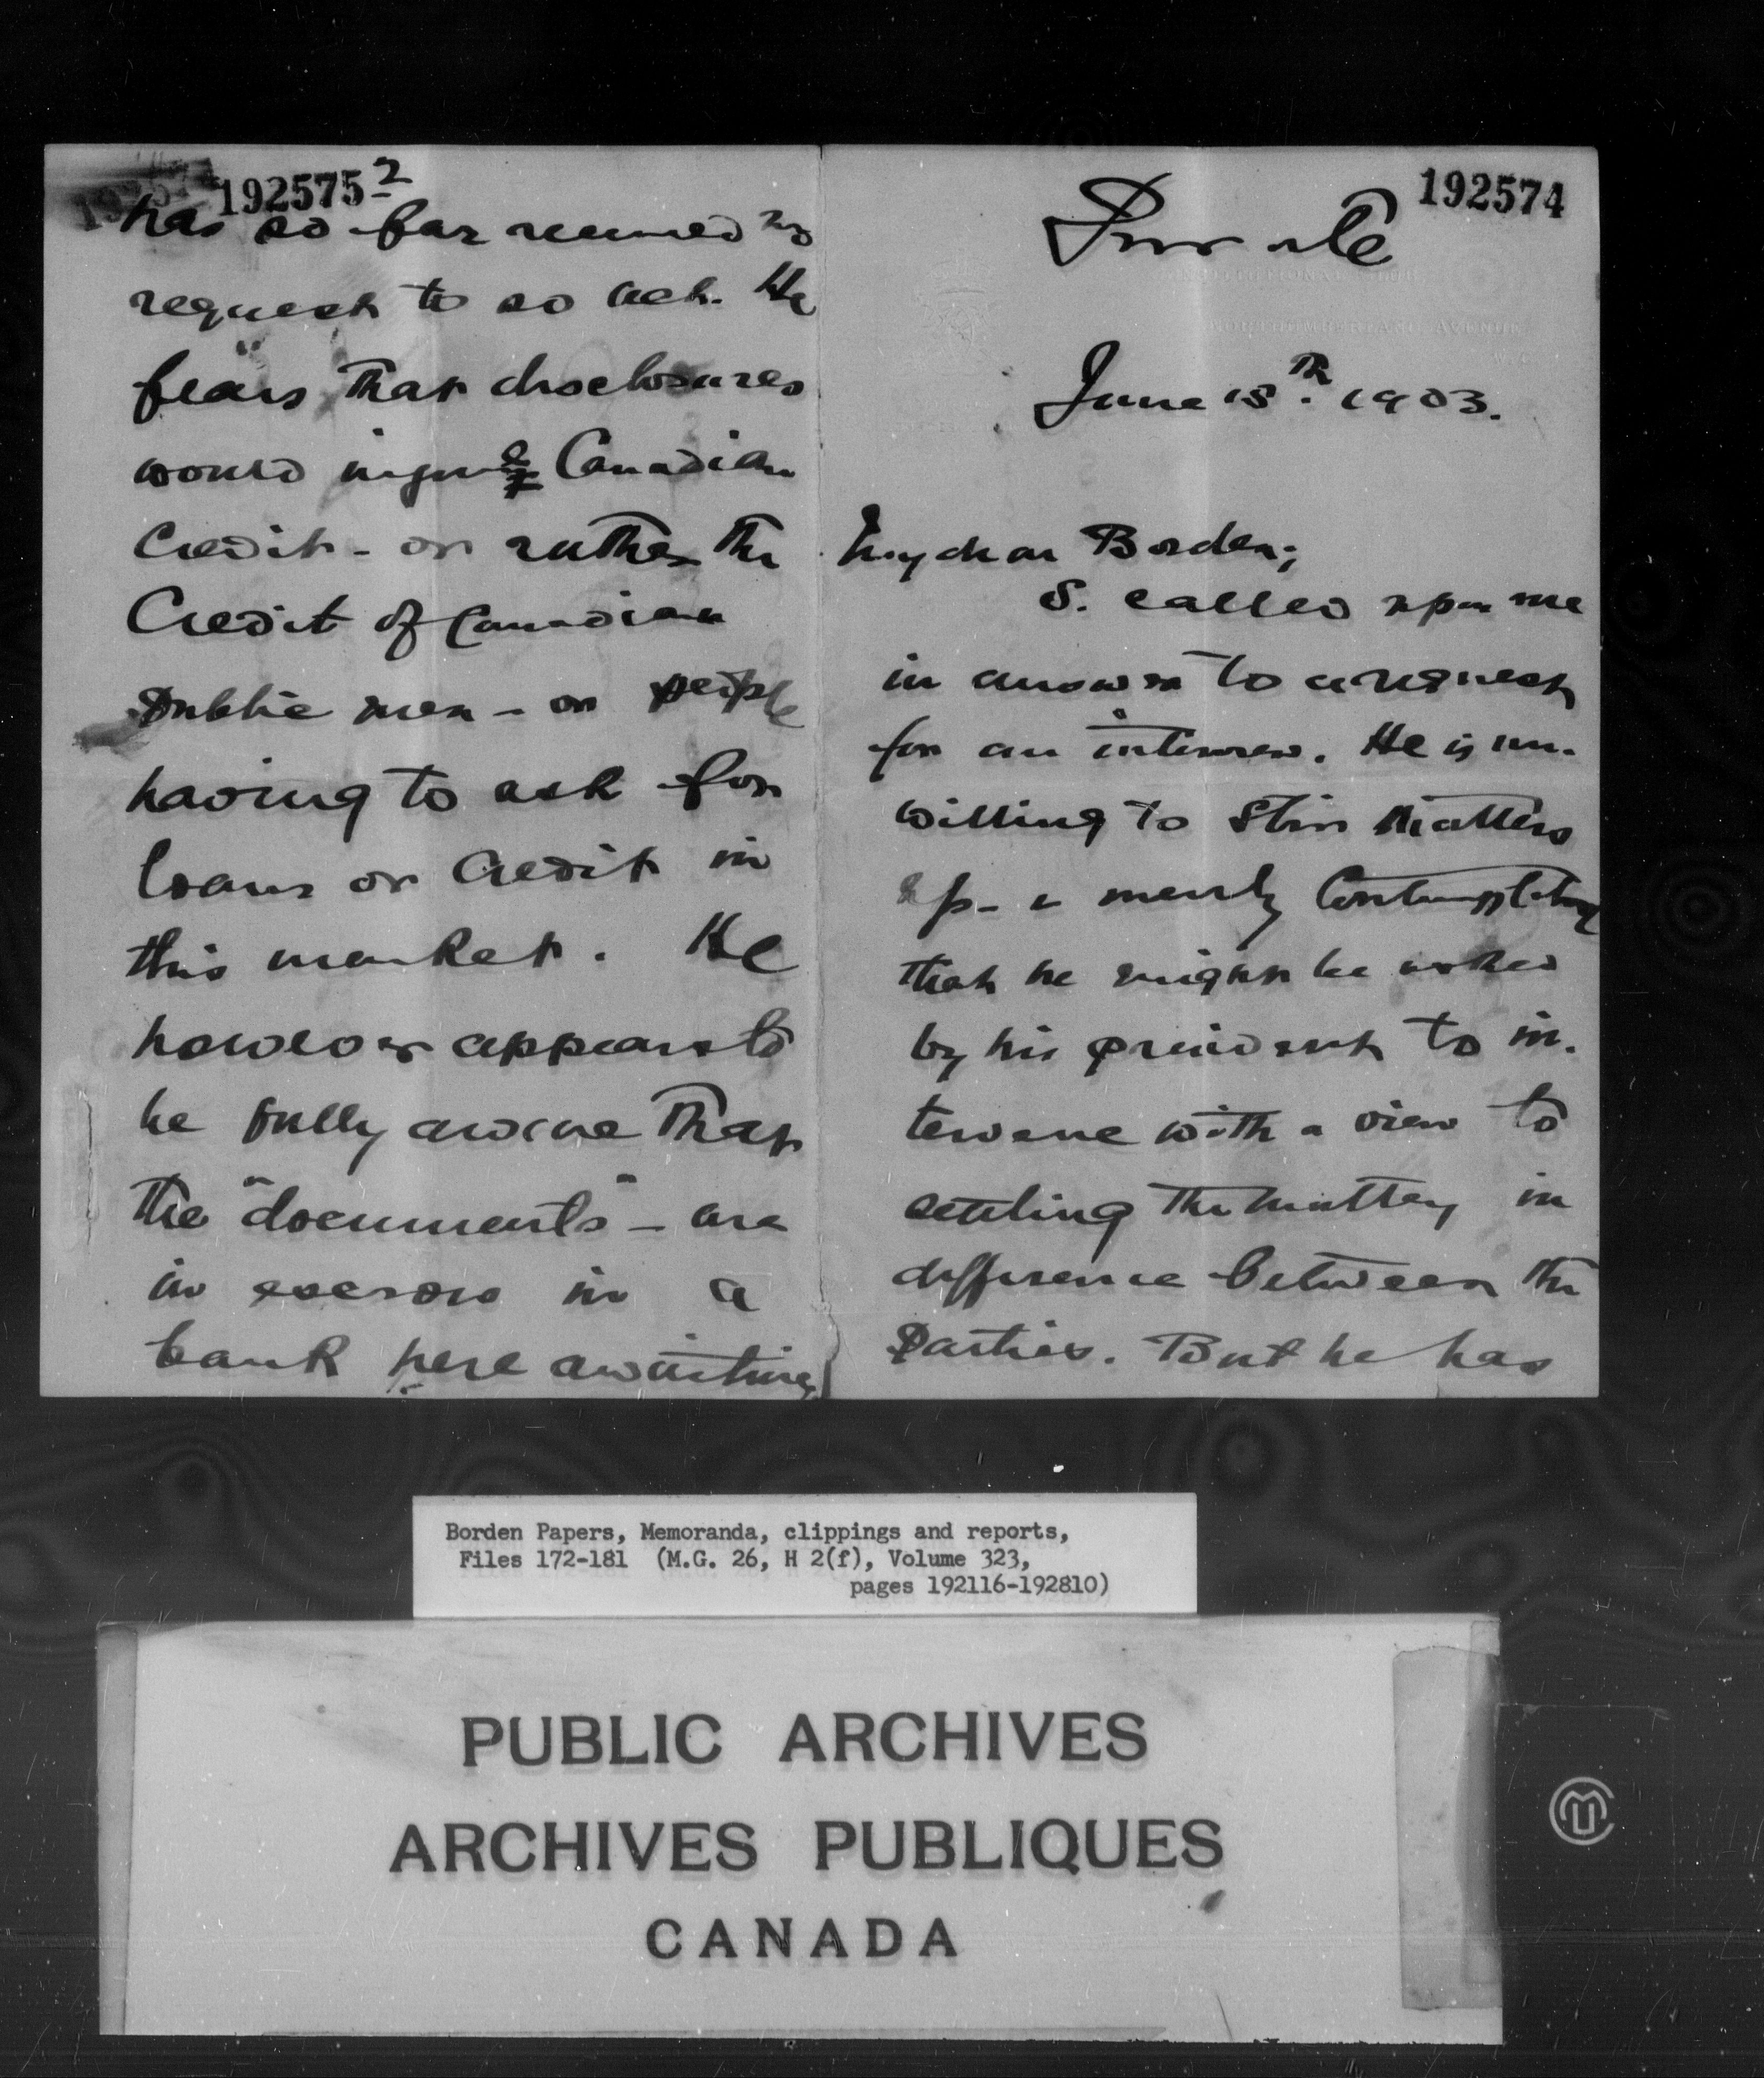 192574
Private
CONSTITUTIONAL CLUB
NORTHUMBERLAND AVENUE
W.C.
June 18th. 1903.
My dear Borden;
S. called upon me
in answer to a request
for an interview. He is un-
willing to stir matters
up - & merely contemplating
that he might be asked
by his president to in-
tervene with a view to
settling the matter in
difference between the
Parties. But he has
192575 2
has so far received no
request to so act. He
fears that disclosures
would injure Canadian
Credit - or rather the
Credit of Canadian
Public men - or people
having to ask for
loans or Credit in
this market. He
however appears to
be fully aware that
the "documents" - are
in escrow in a
bank here awaiting
Borden Papers, Memoranda, clippings and reports,
Files 172-181 (M.G. 26, H 2(f), Volume 323,
pages 192116-192810)
PUBLIC ARCHIVES
ARCHIVES PUBLIQUES
CANADA